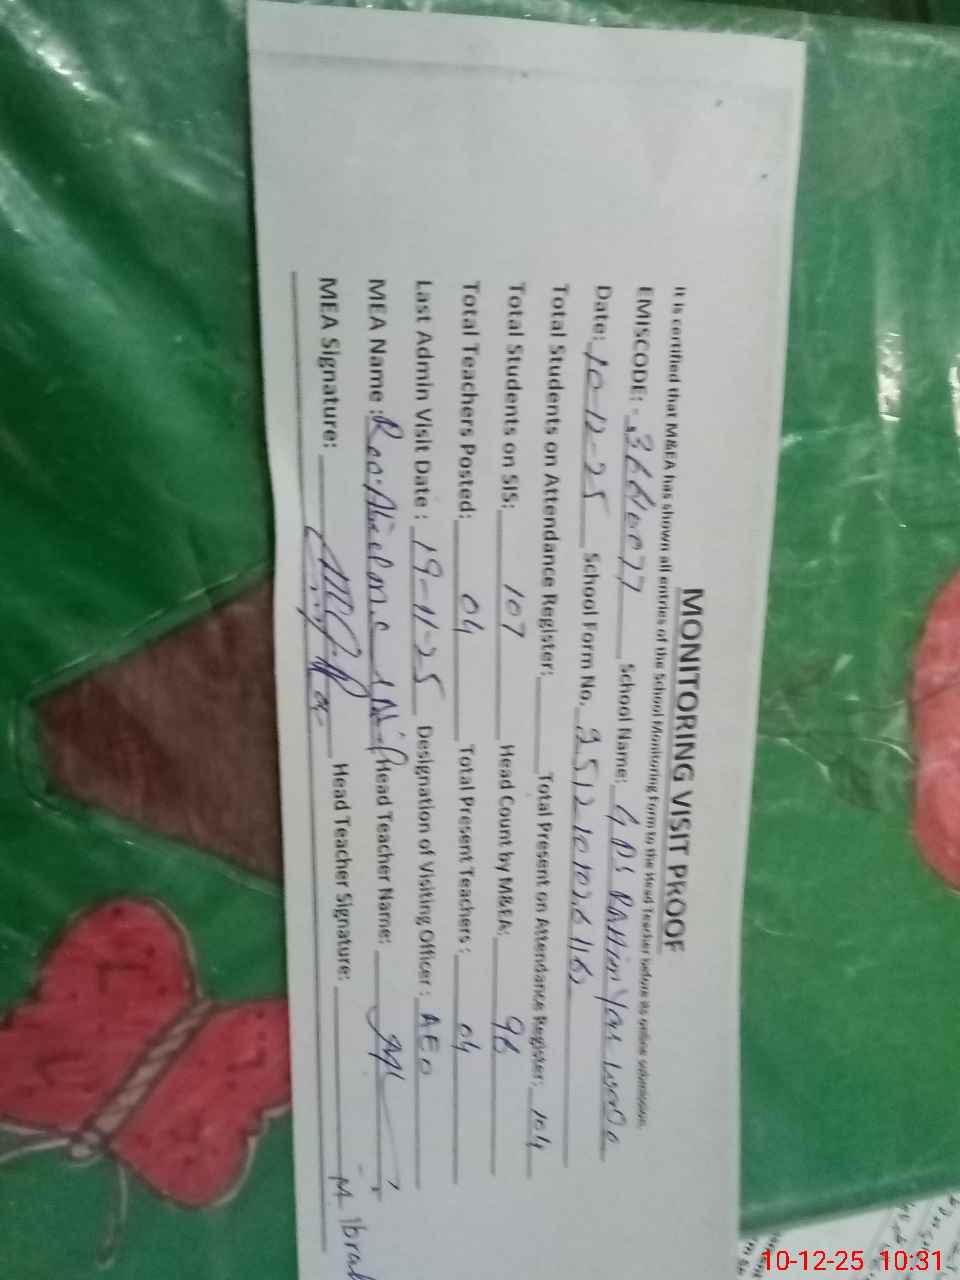 MONITORING VISIT PROOF
It is certified that M&EA has shown all entries of the School Monitoring Form to the Head Teacher before its online submission.
EMISCODE: School Name: GPS RAHIM Yar wala
Date: 10-12-25 School Form No.
Total Students on Attendance Register: Total Present on Attendance Register: 104
Total Students on SIS: 107 Head Count by M&EA: 98
Total Teachers Posted: 04 Total Present Teachers: 04
Last Admin Visit Date: 19-11-25 Designation of Visiting Officer: AEO
MEA Name: Head Teacher Name:
MEA Signature: Head Teacher Signature: M. Ibrah
10-12-25 10:31